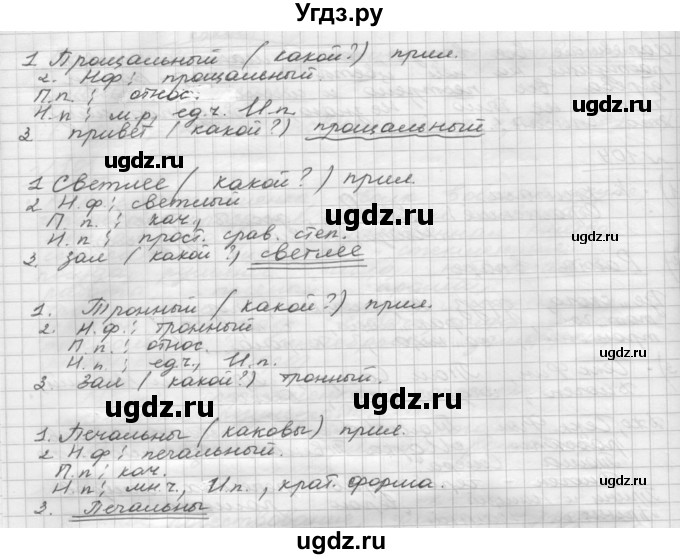 Угдз.ру
1 Прощальный ( какой?) прил.
2. Н.ф; прощальный
П.п; относ.
Н.п; м.р, ед.ч. И.п.
3 привет ( какой?) прощальный
ugdz.ru
ugdz.ru
ugdz.ru
1 Светлее ( какой?) прил.
2 Н.ф; светлый
П.п.; кач.,
Н.п; прост. срав. степ.
3. зал ( какой?) светлее
ugdz.ru
ugdz.ru
ugdz.ru
1. Тронный ( какой?) прил.
2. Н.ф.; тронный
П.п; относ.
Н.п; ед.ч, И.п.
3 зал ( какой?) тронный.
ugdz.ru
ugdz.ru
ugdz.ru
1. Печальны ( каковы) прил.
2 Н.ф; печальный.
П.п; кач.
Н.п; мн.ч, И.п., крат. форма.
3. Печальны
ugdz.ru
ugdz.ru
ugdz.ru